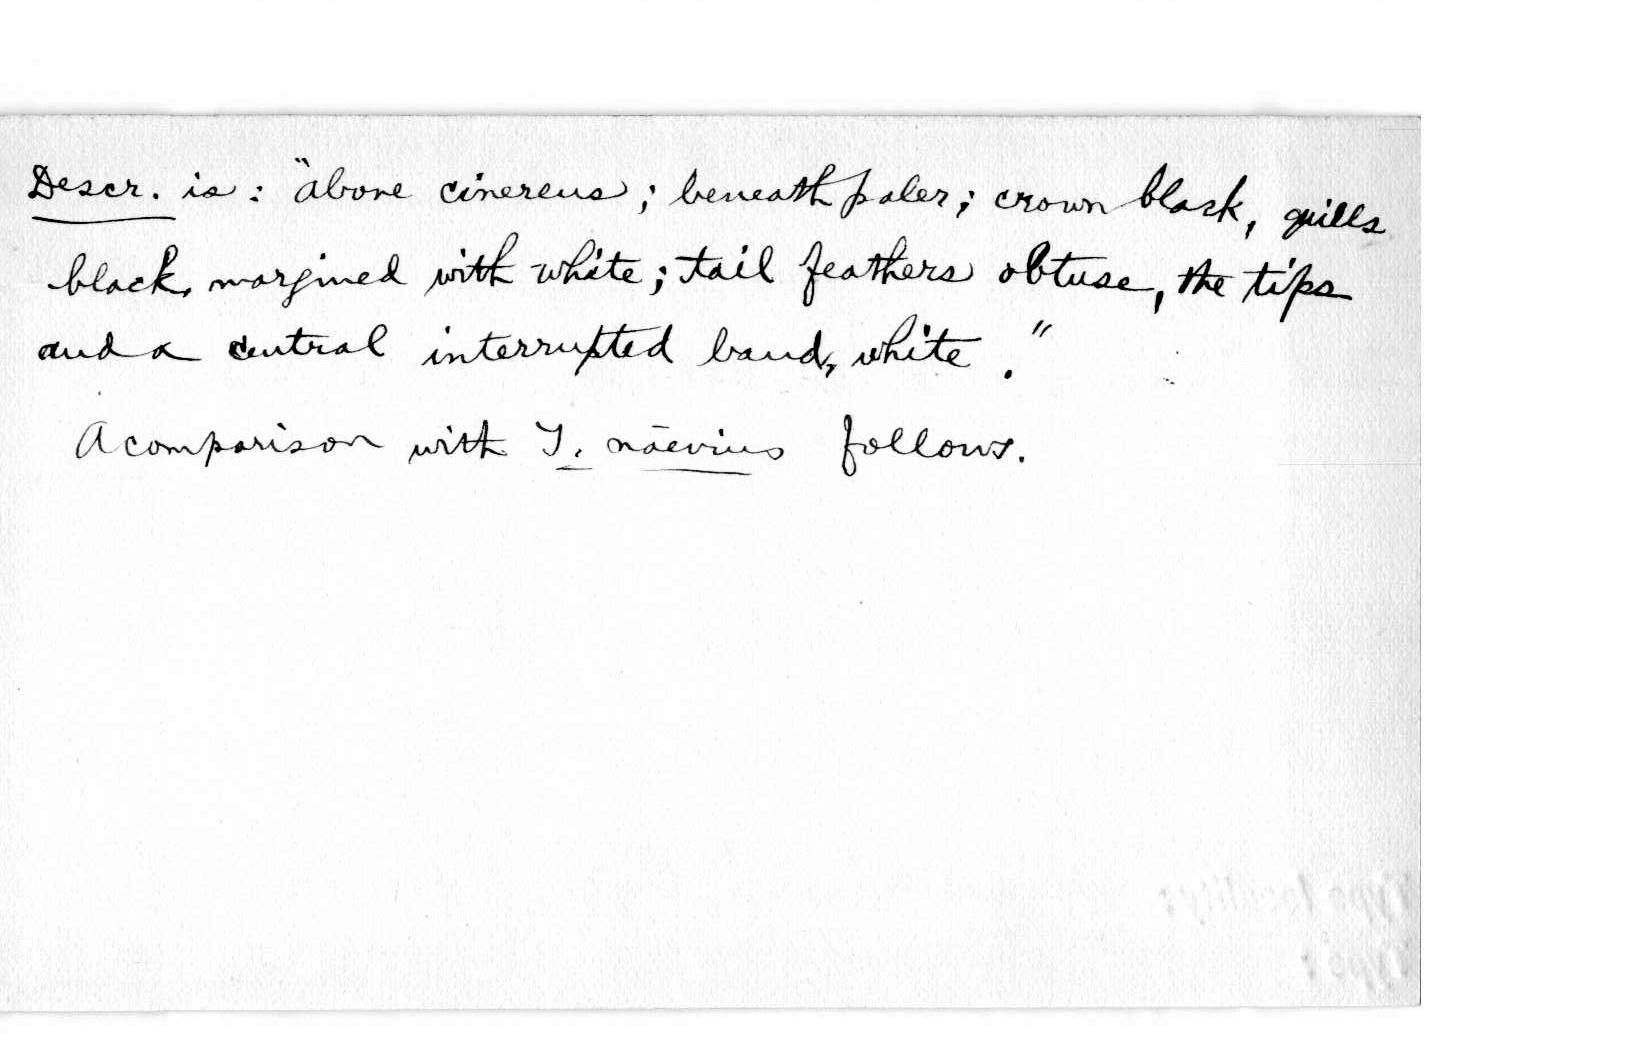 Descr. is: "above cinereus; beneath paler; crown black, quills
black, margined with white; tail feathers obtuse, the tips
and a central interrupted band, white."
A comparison with T. naevius follows.
Type locality:
Type: